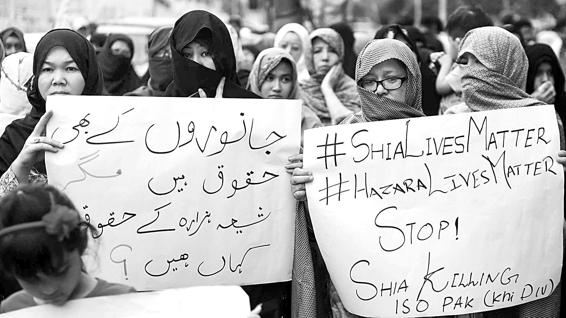 جانوروں کے بھی
حقوق ہیں مگر
شیعہ ہزارہ کے حقوق
کہاں ہیں ؟
#SHIALIVESMATTER
#HAZARALIVESMATTER
STOP!
SHIA KILLING
ISO PAK (KHI DIV)